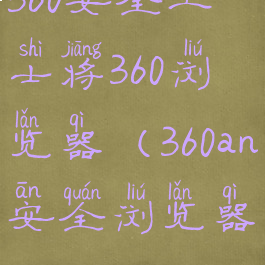 360安全卫
shì jiāng liú
士将360浏
lǎn qì
览器（360an
ān quán liú lǎn qì
安全浏览器